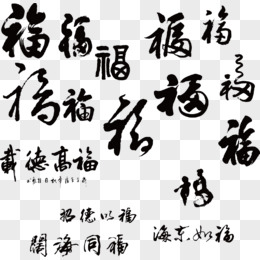 福 福 福 福 福
福 福 福 福 福
福 福
福
載德高福
招德以福
闔海同福
海东如福